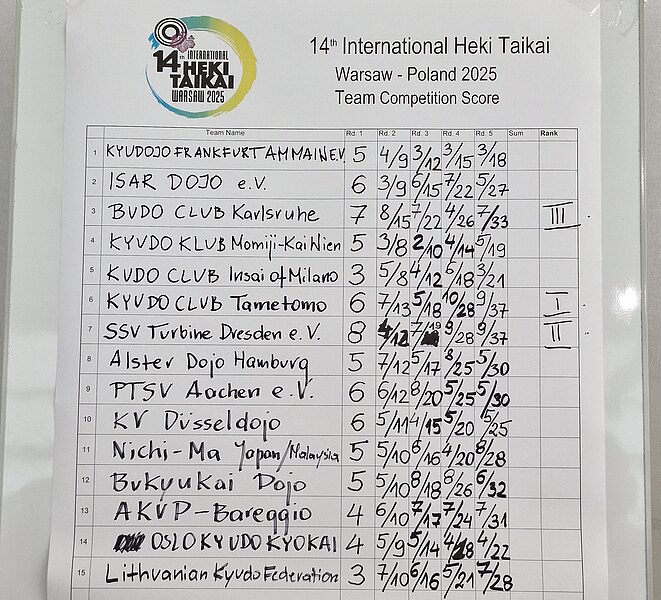 14 INTERNATIONAL
HEKI
TAIKAI
WARSAW 2025
14th International Heki Taikai
Warsaw - Poland 2025
Team Competition Score
Team Name Rd. 1 Rd. 2 Rd. 3 Rd. 4 Rd. 5 Sum Rank
1 KYUDOJO FRANKFURT AM MAIN E.V. 5 4/9 3/12 3/15 3/18
2 ISAR DOJO e.V. 6 3/9 6/15 7/22 5/27
3 BUDO CLUB Karlsruhe 7 8/15 7/22 4/26 7/33 III
4 KYUDO KLUB Momiji-Kai Wien 5 3/8 2/10 4/14 5/19
5 KUDO CLUB Insai of Milano 3 5/8 4/12 6/18 3/21
6 KYUDO CLUB Tametomo 6 7/13 5/18 10/28 9/37 I
7 SSV Turbine Dresden e.V. 8 4/12 7/19 9/28 9/37 II
8 Alster Dojo Hamburg 5 7/12 5/17 8/25 5/30
9 PTSV Aachen e.V. 6 6/12 8/20 5/25 5/30
10 KV Düsseldojo 6 5/11 4/15 5/20 5/25
11 Nichi-Ma Japan/Malaysia 5 5/10 6/16 4/20 8/28
12 Bukyukai Dojo 5 5/10 8/18 8/26 6/32
13 AKVP-Bareggio 4 6/10 7/17 7/24 7/31
14 OSLO KYUDO KYOKAI 4 5/9 5/14 4/18 4/22
15 Lithuanian Kyudo Federation 3 7/10 6/16 5/21 7/28